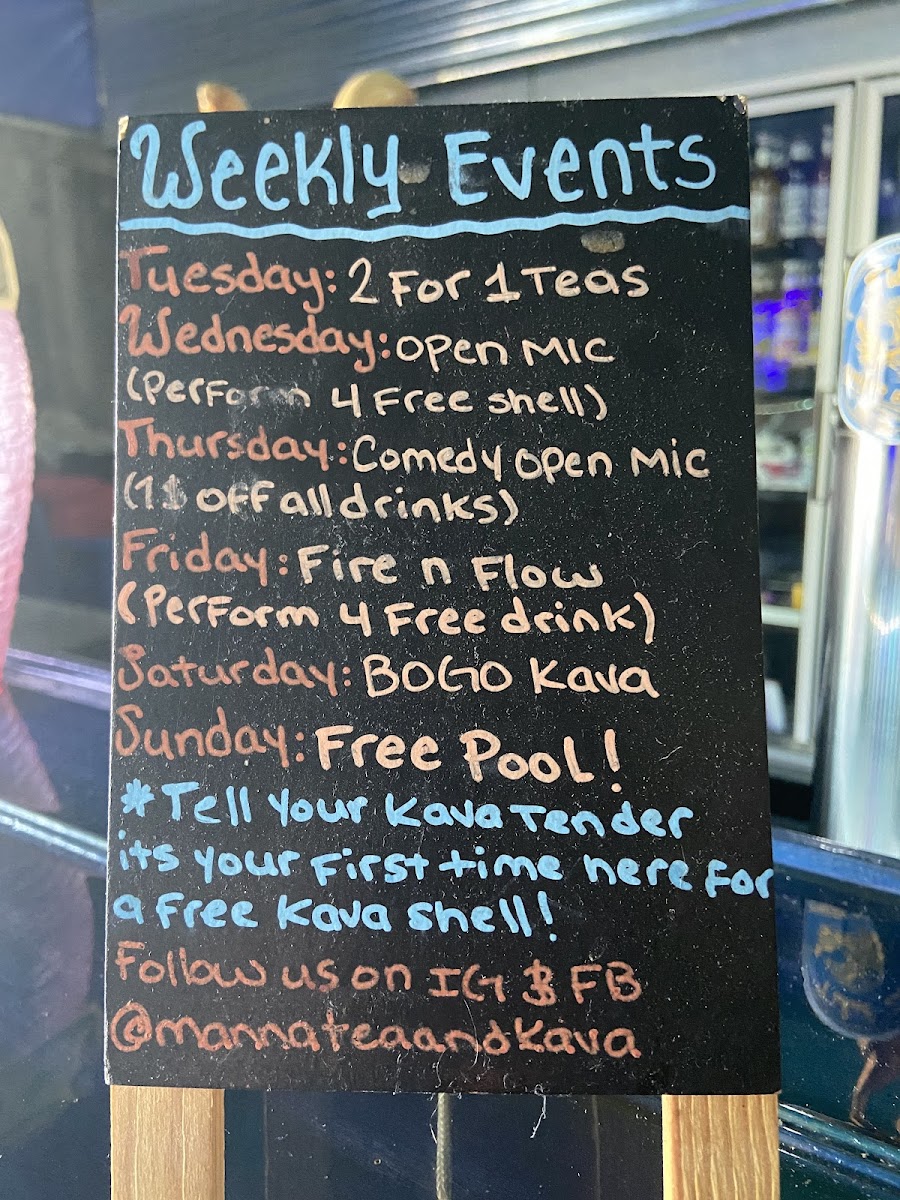 Weekly Events
Tuesday: 2 For 1 Teas
Wednesday: open Mic
(Perform 4 Free shell)
Thursday: Comedy open Mic
(1$ off all drinks)
Friday: Fire n Flow
(Perform 4 Free drink)
Saturday: BOGO Kava
Sunday: Free Pool!
*Tell your Kava Tender
its your first time here for
a free Kava shell!
Follow us on IG & FB
@mannateaandkava